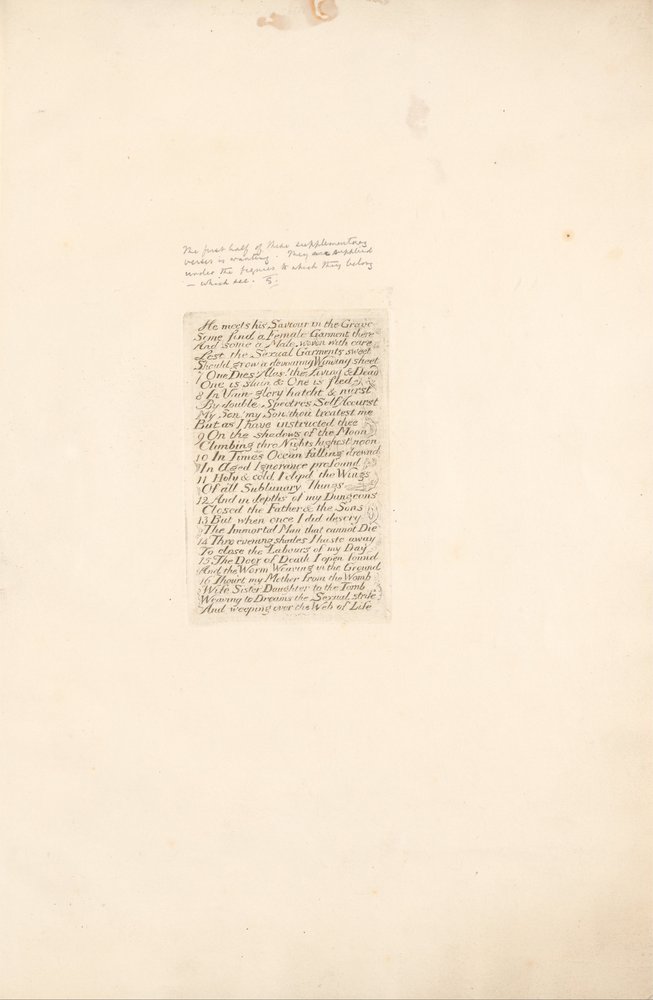 The first half of these supplementary
verses is wanting. They are supplied
under the figures to which they belong
— which see.
He meets his Saviour in the Grave
Some find a Female Garment there
And some a Male, woven with care
Lest the Sexual Garments sweet
Should grow a devouring Winding sheet
One Dies! Alas! the Living & Dead
One is slain & One is fled
8 In Vain-glory hatcht & nurst
By double Spectres Self Accurst
My Son! my Son! thou treatest me
But as I have instructed thee
9 On the shadows of the Moon
Climbing thro Nights highest noon
10 In Times Ocean falling drownd
In Aged Ignorance profound
11 Holy & cold I clipd the Wings
Of all Sublunary Things
12 And in depths of my Dungeons
Closed the Father & the Sons
13 But when once I did descry
The Immortal Man that cannot Die
14 Thro evening shades I haste away
To close the Labours of my Day
15 The Door of Death I open found
And the Worm Weaving in the Ground
16 Thou'rt my Mother from the Womb
Wife Sister Daughter to the Tomb
Weaving to Dreams the Sexual strife
And weeping over the Web of Life